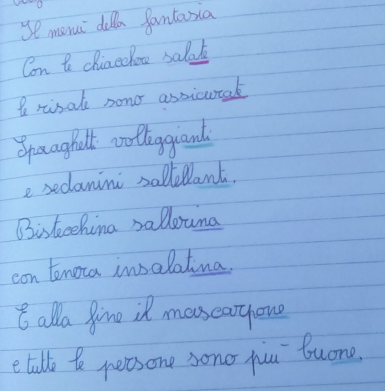 Il menù della fantasia
Con le chiacchere salate
le risate sono assicurate
Spaaghetti volteggianti
e sedanini saltellanti.
Bistecchina sallerina
con tenera insalatina.
E alla fine il mascarpone
e tutte le persone sono più buone.